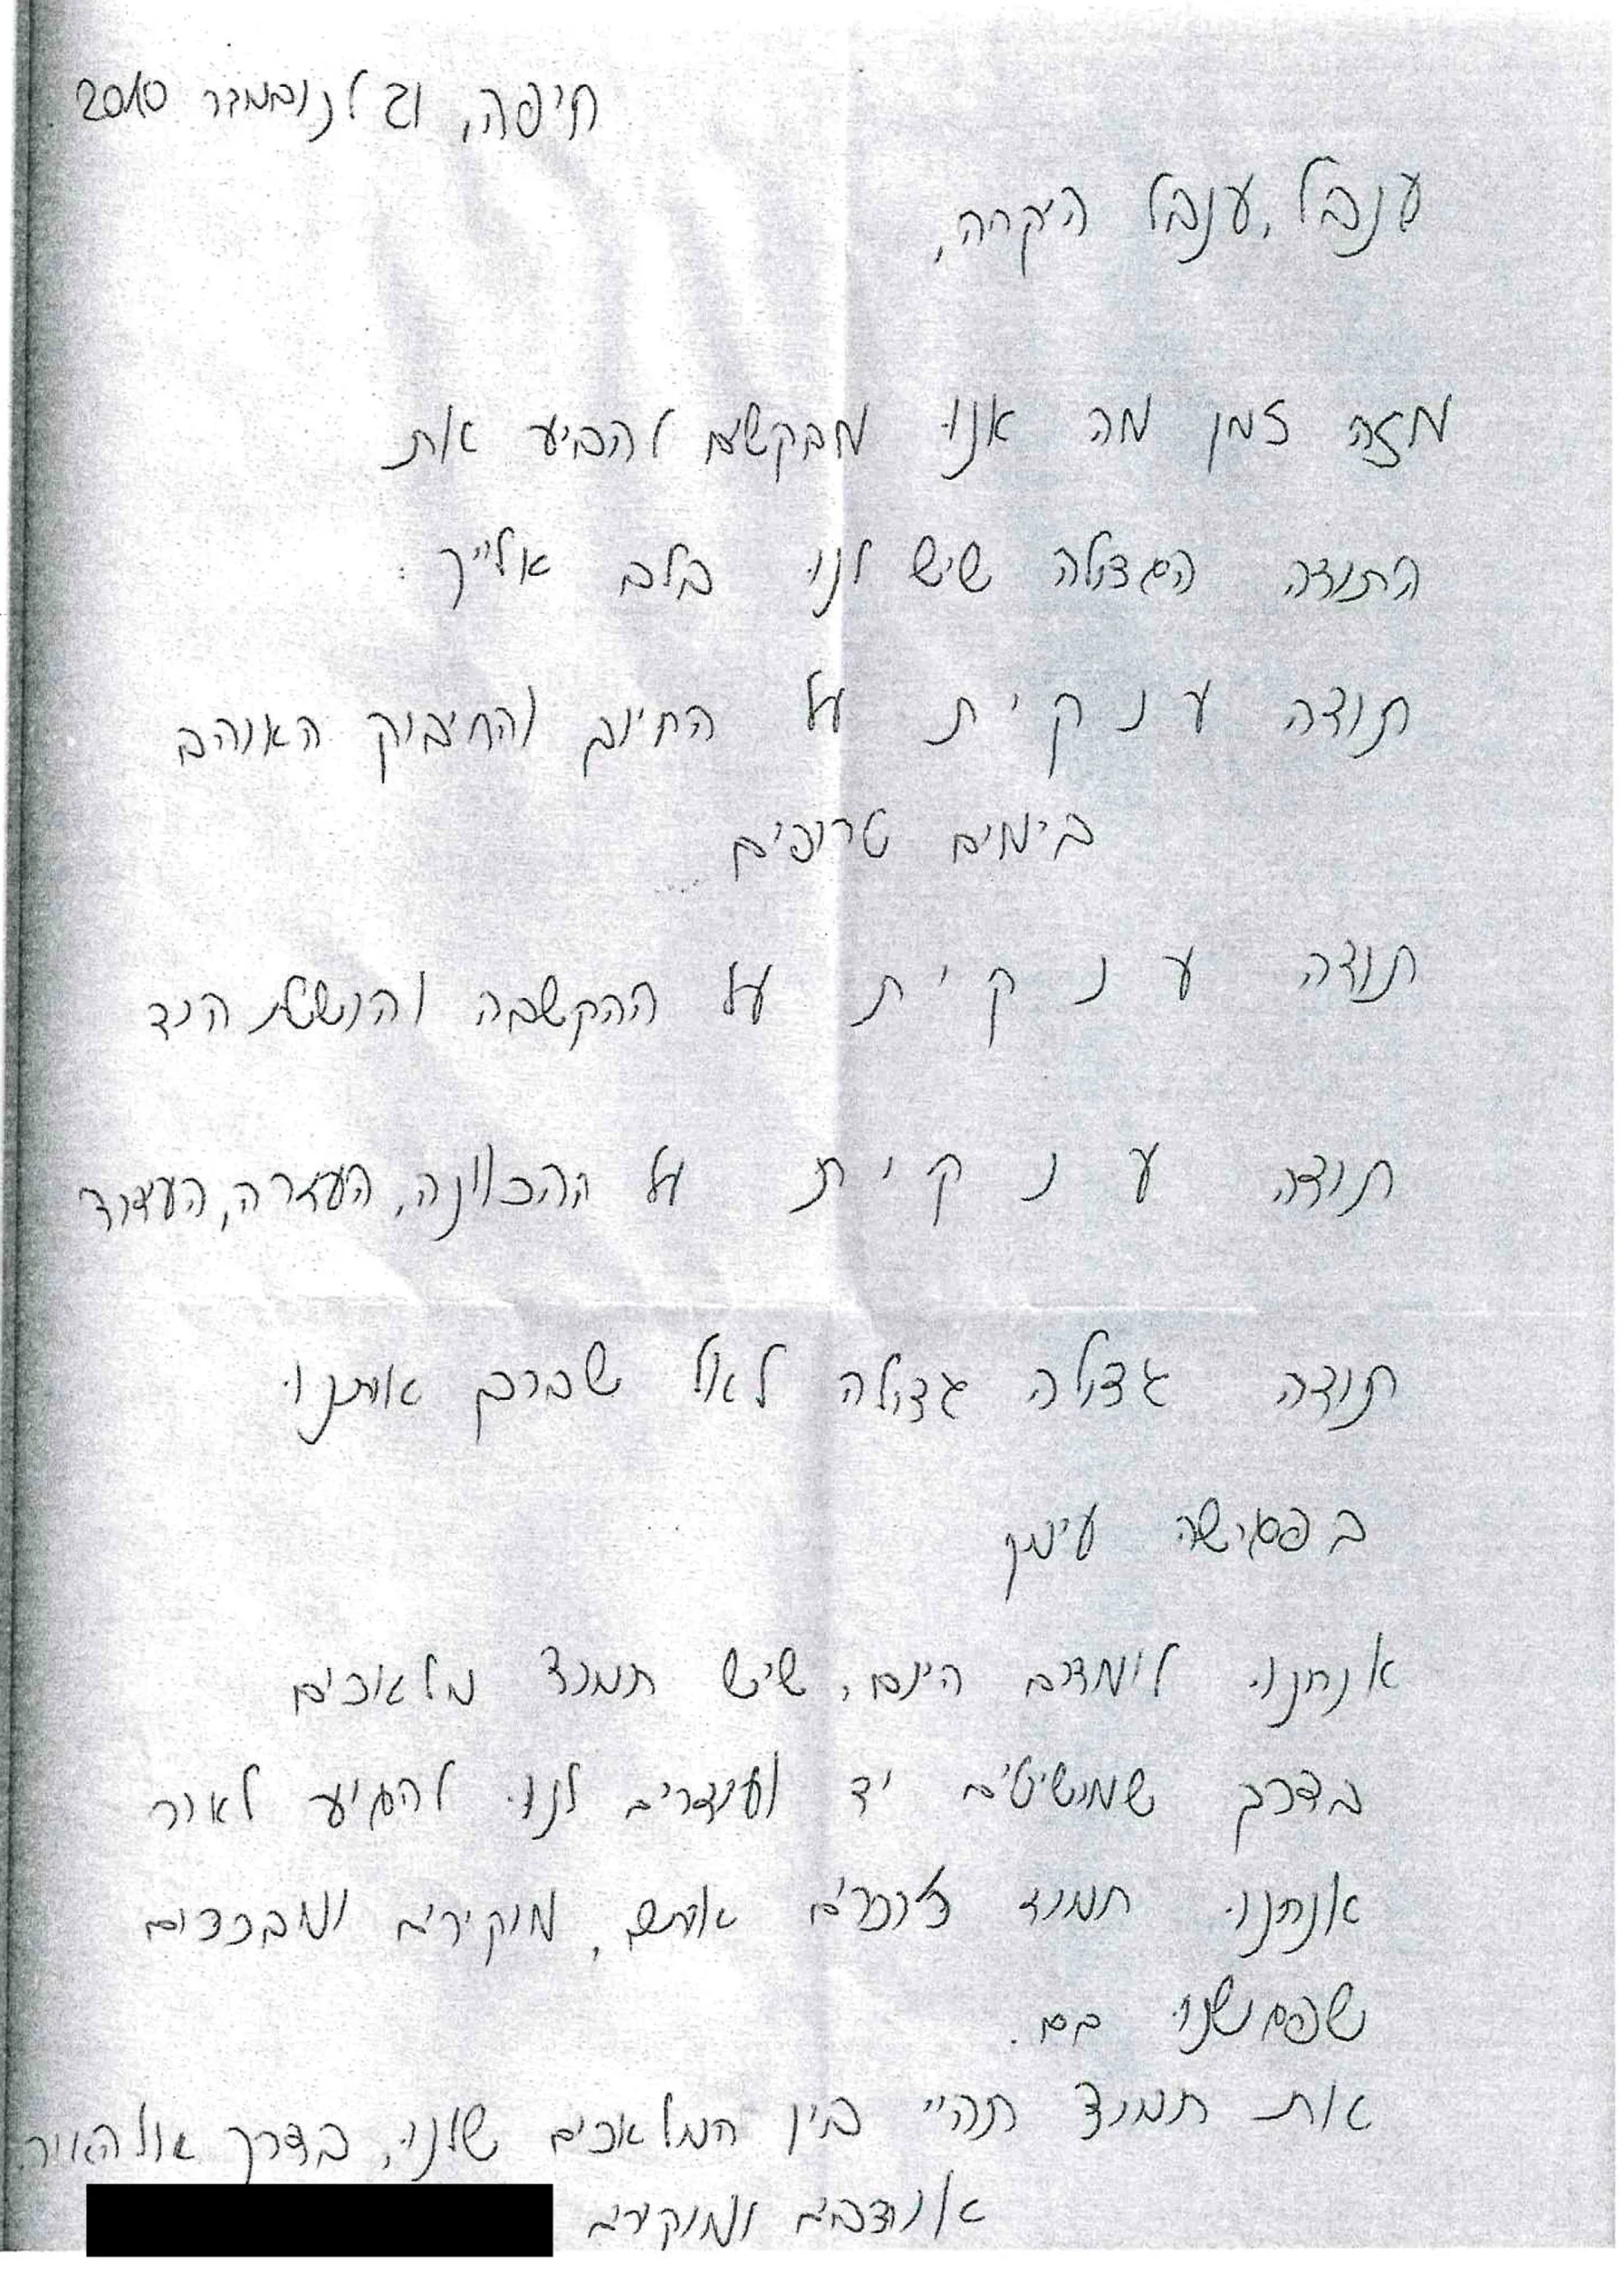 חיפה, לנובמבר 2010
ענבל, ענבל היקרה,
מזה זמן מה אנו מבקשים להביע את
התודה הגדולה שיש לנו בלב אלייך:
תודה ע נ ק י ת על החיוך והחיבוק האוהב
בימים טרופים...
תודה ע נ ק י ת על ההקשבה והושטת היד
תודה ע נ ק י ת על ההכוונה, העזרה, העידוד
תודה גדולה גדולה לאל שברך אותנו
בפגישה עימך
אנחנו לומדים היום, שיש תמיד מלאכים
בדרך שמושיטים יד ועוזרים לנו להגיע לאור
אנחנו תמיד זוכרים אותם, מוקירים ומברכים
שפגשנו בם.
את תמיד תהיי בין המלאכים שלנו, בדרך אל האור.
אוהבים ומוקירים